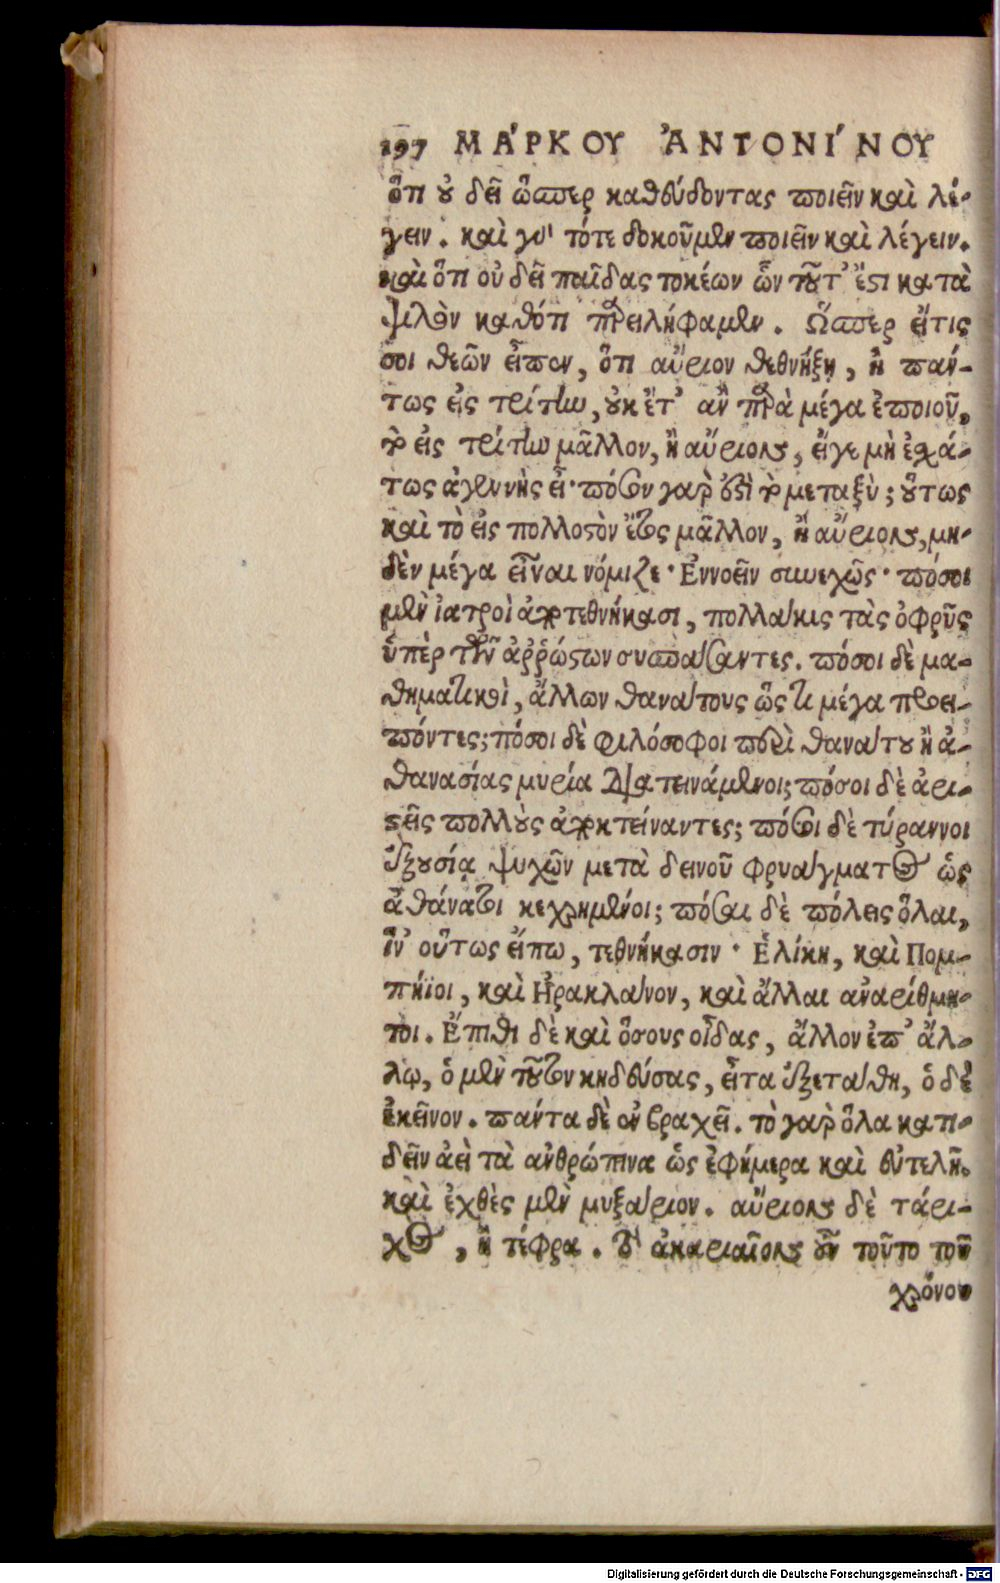 197 ΜΆΡΚΟΥ ἈΝΤΟΝΊΝΟΥ
ὅτι οὐ δεῖ ὥσπερ καθεύδοντας ποιεῖν καὶ λέ-
γειν. καὶ γὰρ τότε δοκοῦμεν ποιεῖν καὶ λέγειν.
καὶ ὅτι οὐ δεῖ παῖδας τοκέων ὧν τοῦτ’ ἔστι κατὰ
ψιλὸν καθότι παρειλήφαμεν. Ὥσπερ εἴτις
σοι θεῶν εἶπον, ὅτι αὔριον τεθνήξῃ, ἢ πάν-
τως εἰς τρίτην, οὐκ ἔτ’ ἂν παρὰ μέγα ἐποιοῦ,
τὸ εἰς τρίτην μᾶλλον, ἢ αὔριον, εἴγε μὴ ἐσχά-
τως ἀγεννὴς εἶ· πόσον γάρ ἐστι τὸ μεταξὺ; οὕτως
καὶ τὸ εἰς πολλοστὸν ἔτος μᾶλλον, ἢ αὔριον, μη-
δὲν μέγα εἶναι νόμιζε· Ἐννοεῖν συνεχῶς· πόσοι
μὲν ἰατροὶ ἀποτεθνήκασι, πολλάκις τὰς ὀφρῦς
ὑπὲρ τῶν ἀῤῥώστων συσπάσαντες. πόσοι δὲ μα-
θηματικοὶ, ἄλλων θανάτους ὥς τι μέγα προει-
πόντες; πόσοι δὲ φιλόσοφοι περὶ θανάτου ἢ ἀ-
θανασίας μυρία διατεινάμενοι; πόσοι δὲ ἀρι-
στεῖς πολλοὺς ἀποκτείναντες; πόσοι δὲ τύραννοι
ἐξουσίᾳ ψυχῶν μετὰ δεινοῦ φρυάγματος ὡς
ἀθάνατοι κεχρημένοι; πόσαι δὲ πόλεις ὅλαι,
ἵν’ οὕτως εἴπω, τεθνήκασιν· Ἑλίκη, καὶ Πομ-
πήϊοι, καὶ Ἡρακλάνον, καὶ ἄλλαι ἀναρίθμη-
τοι. Ἔπιθι δὲ καὶ ὅσους οἶδας, ἄλλον ἐπ’ ἄλ-
λῳ, ὁ μὲν τοῦτον κηδεύσας, εἶτα ἐξετάθη, ὁ δὲ
ἐκεῖνον. πάντα δὲ ἐν βραχεῖ. τὸ γὰρ ὅλα κατι-
δεῖν ἀεὶ τὰ ἀνθρώπινα ὡς ἐφήμερα καὶ εὐτελῆ.
καὶ ἐχθὲς μὲν μυξάριον. αὔριον δὲ τάρι-
χος, ἢ τέφρα. τὸ ἀκαριαῖον οὖν τοῦτο τοῦ
χρόνου
Digitalisierung gefördert durch die Deutsche Forschungsgemeinschaft - DFG